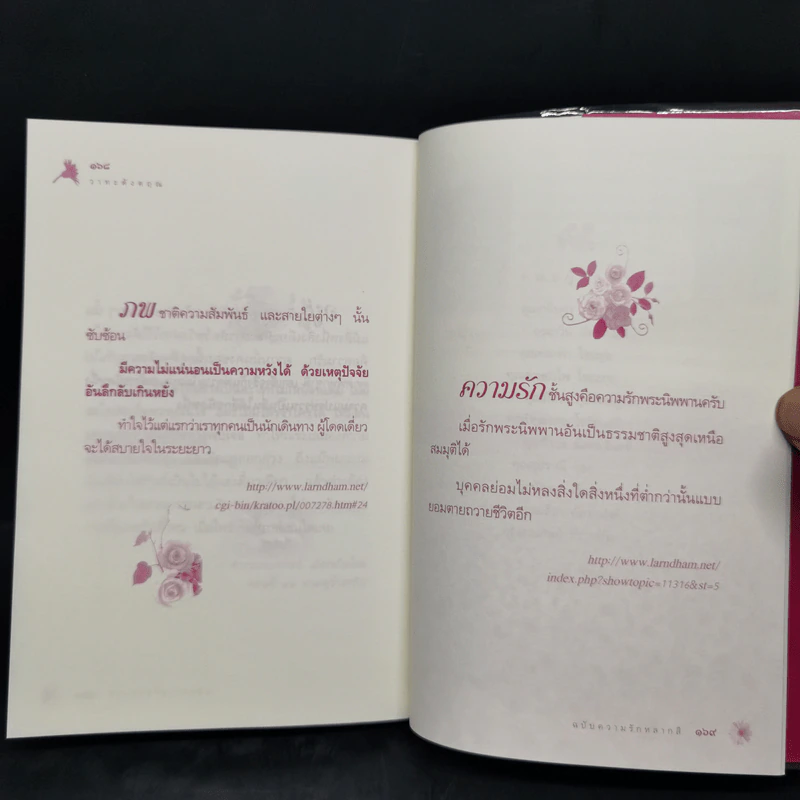 ๑๖๘
วาทะดังตฤณ
ภพ ชาติความสัมพันธ์ และสายใยต่างๆ นั้น
ซับซ้อน
มีความไม่แน่นอนเป็นความหวังได้ ด้วยเหตุปัจจัย
อันลึกลับเกินหยั่ง
ทำใจไว้แต่แรกว่าเราทุกคนเป็นนักเดินทาง ผู้โดดเดี่ยว
จะได้สบายใจในระยะยาว
http://www.larndham.net/
cgi-bin/kratoo.pl/007278.htm#24
ความรัก ชั้นสูงคือความรักพระนิพพานครับ
เมื่อรักพระนิพพานอันเป็นธรรมชาติสูงสุดเหนือ
สมมุติได้
บุคคลย่อมไม่หลงสิ่งใดสิ่งหนึ่งที่ต่ำกว่านั้นแบบ
ยอมตายถวายชีวิตอีก
http://www.larndham.net/
index.php?showtopic=11316&st=5
ฉบับความรักหลากสี ๑๖๙